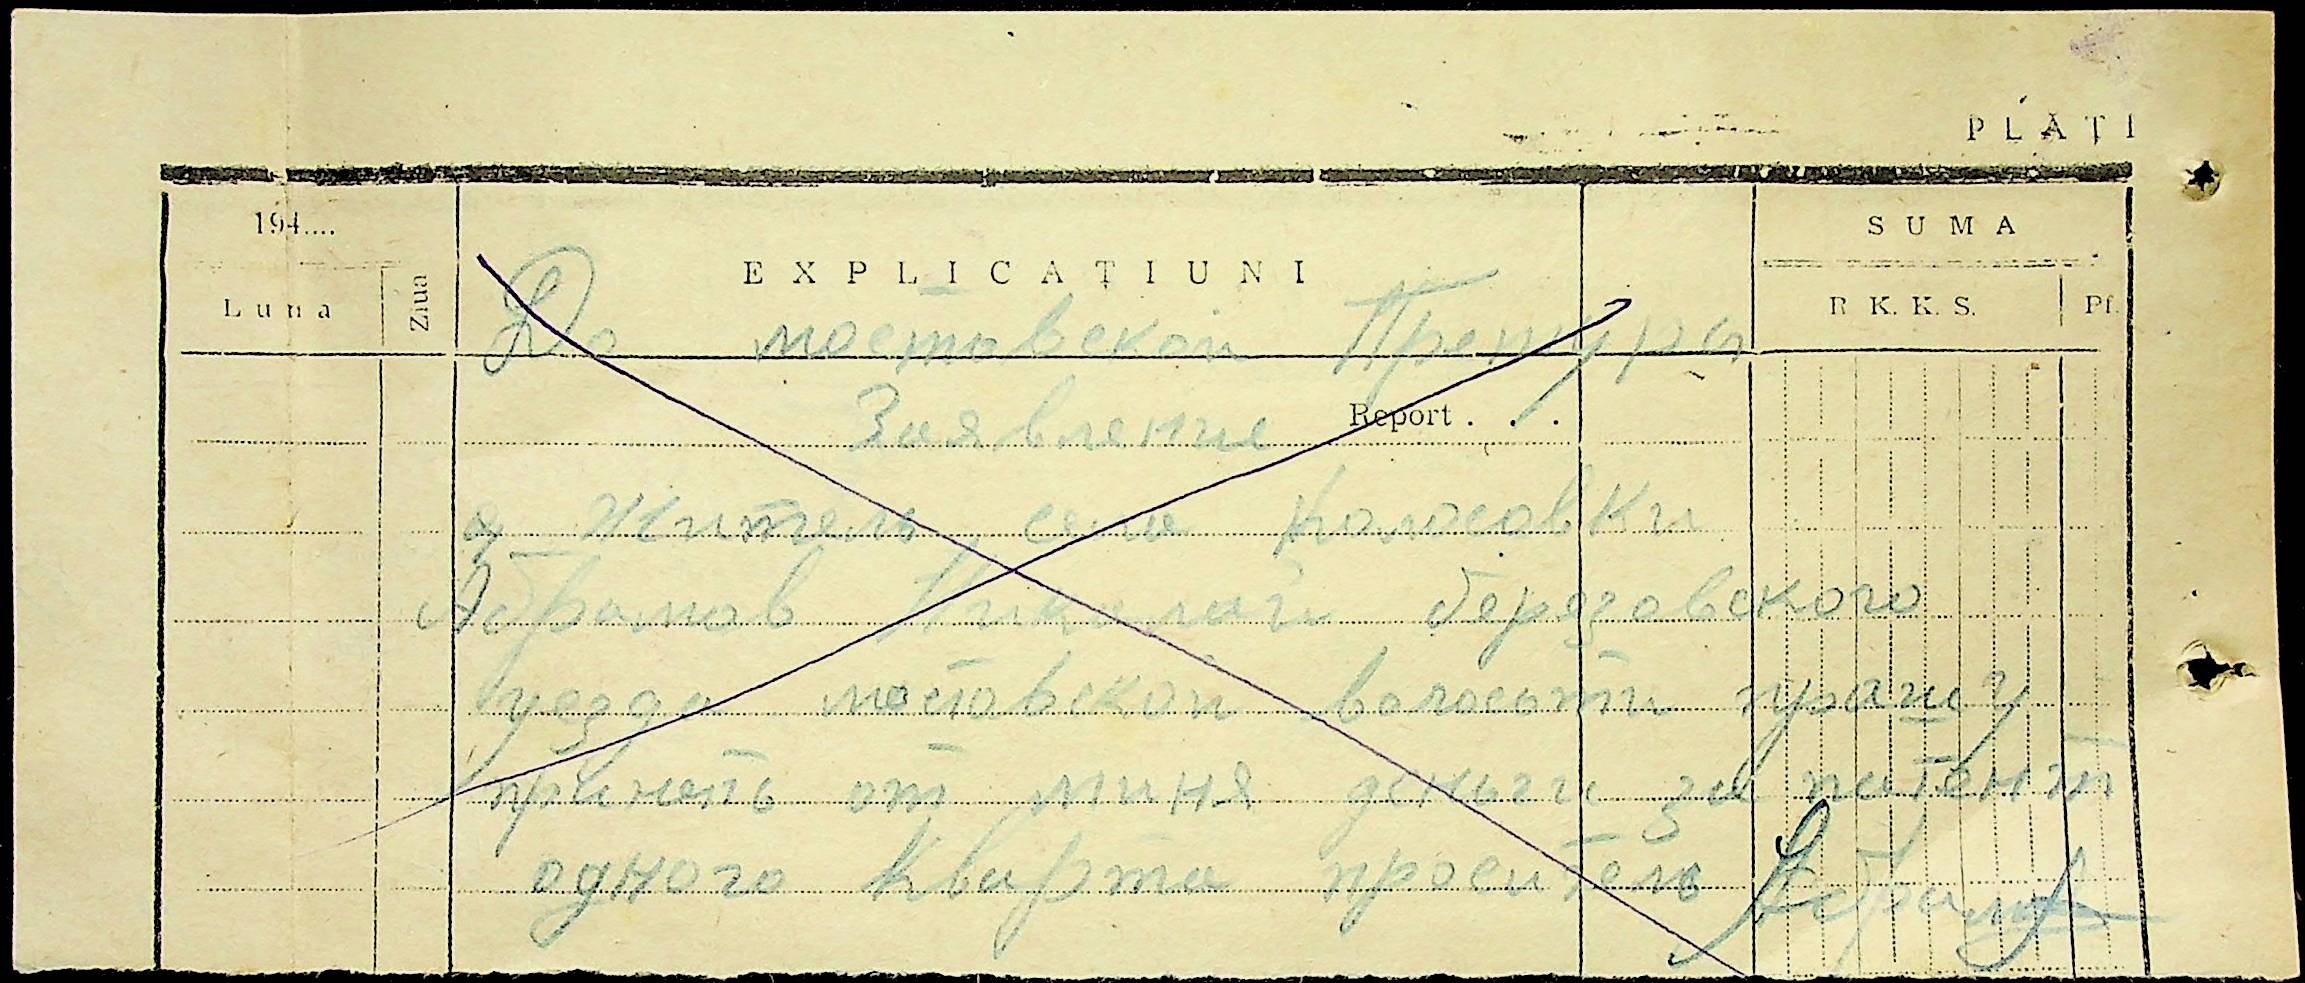 PLĂȚI
194....
Luna
Ziua
EXPLICAȚIUNI
SUMA
R. K. K. S.
Pf.
До мостовской Претуры
Заявление
Report . . .
я житель села Колосовки
Абрамов Николай березовского
уезда мостовской волосьти прашу
принять от миня деньги за патент
одного Кварта проситель Абрамов